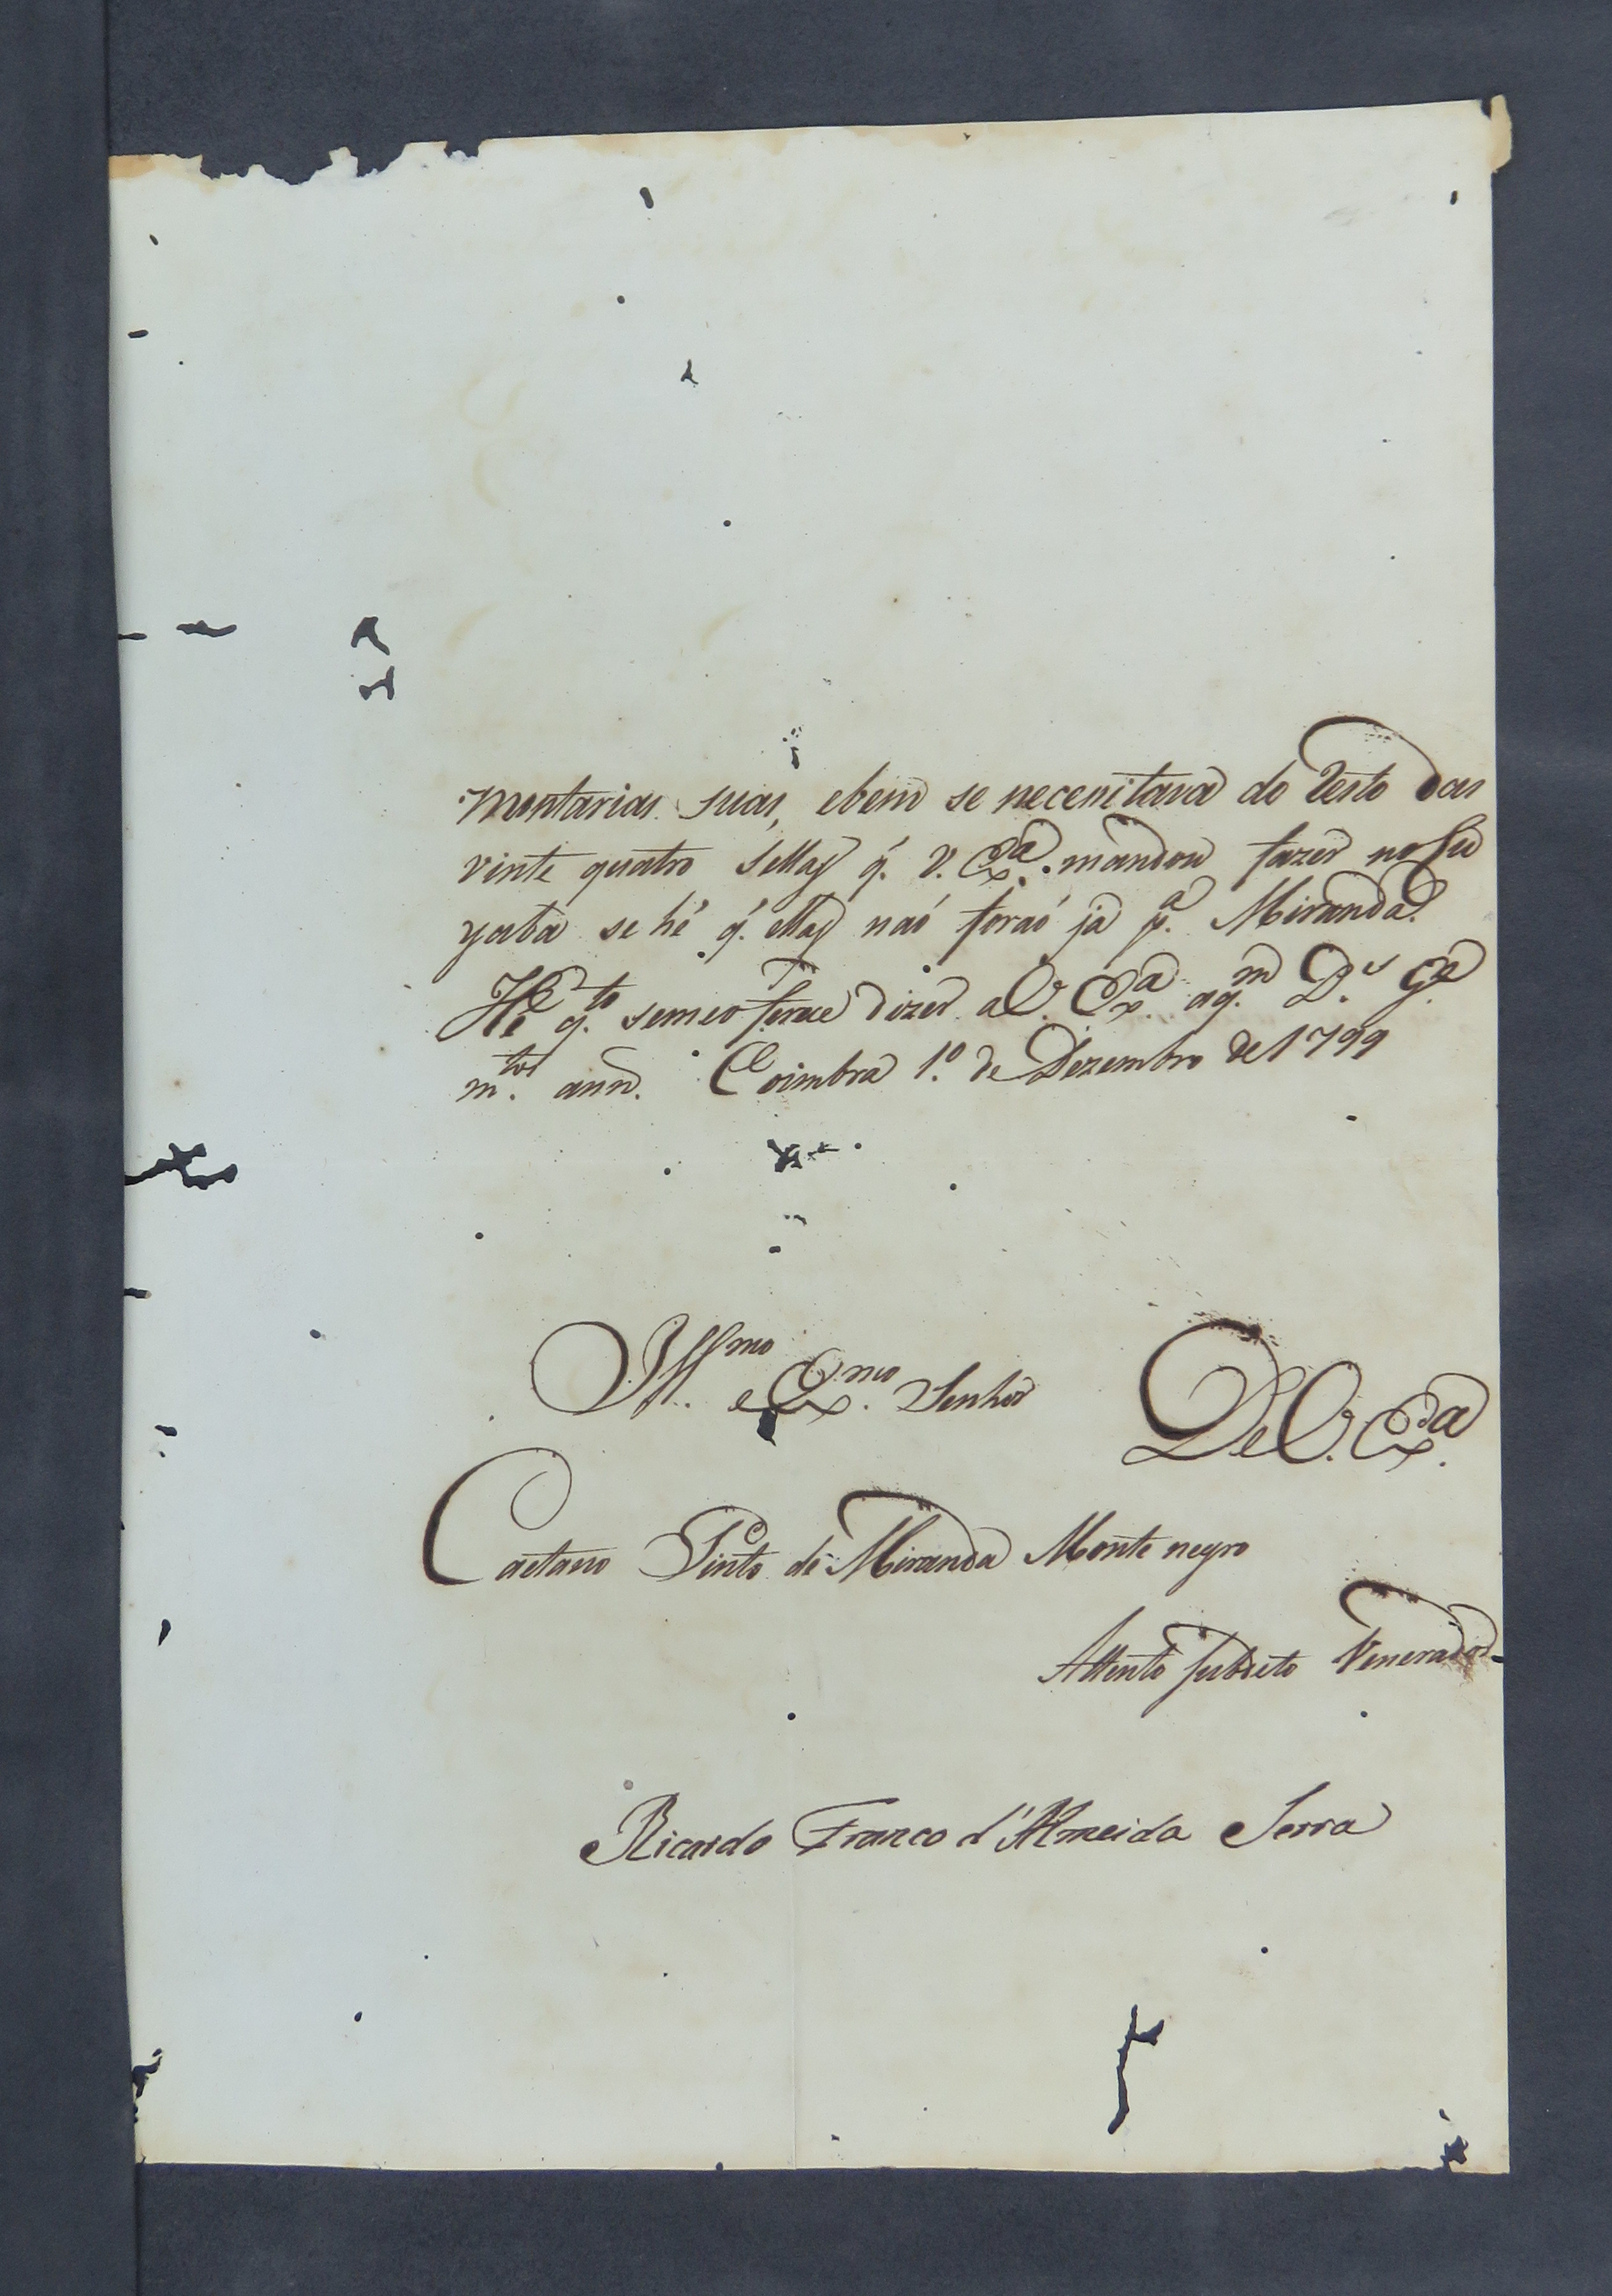 montarias suas, ebem se necesitava do resto das
vinte quatro sellas q. V. Exa. mandou fazer no Cu
yaba se hé q. ellas naó foraó já pa. Miranda.
He qto. semeoferece dizer aV. Exa. aqm. D.s Ge
mtos. ann. Coimbra 1º. de Dezembro de 1799
Illmo. e Exmo. Senhor
DeV. Exa.
Caetano Pinto de Miranda Monte negro
Attento Subdito Venerador
Ricardo Franco d'Almeida Serra